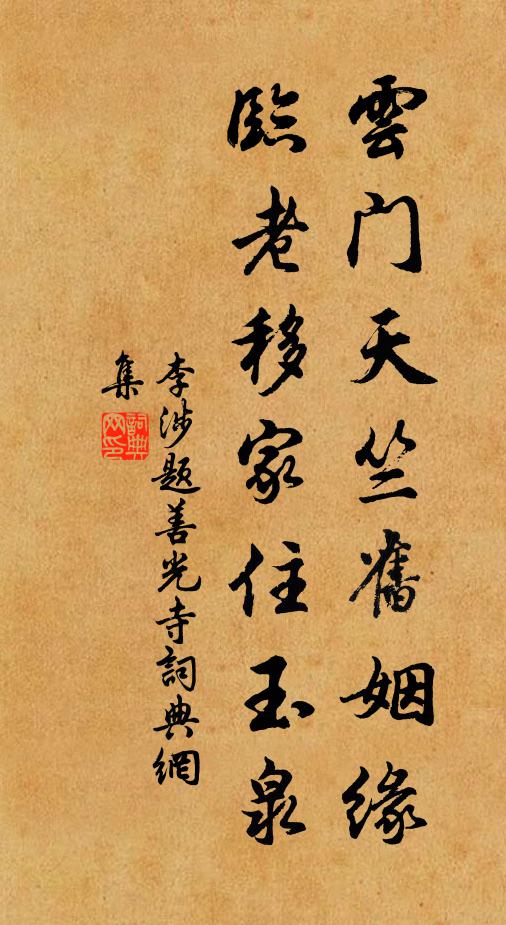 雲门天竺舊姻緣
臨老移家住玉泉
李涉题善光寺詞典網
集
詞典
网印